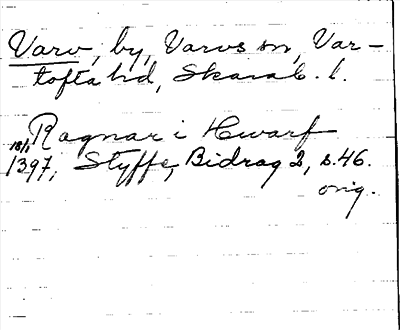 Varv, by, Varvs sn, Var-
tofta hd, Skarab. l.
Ragnar i Hwarf
18/1 1397, Styffe, Bidrag 2, s. 46.
orig.